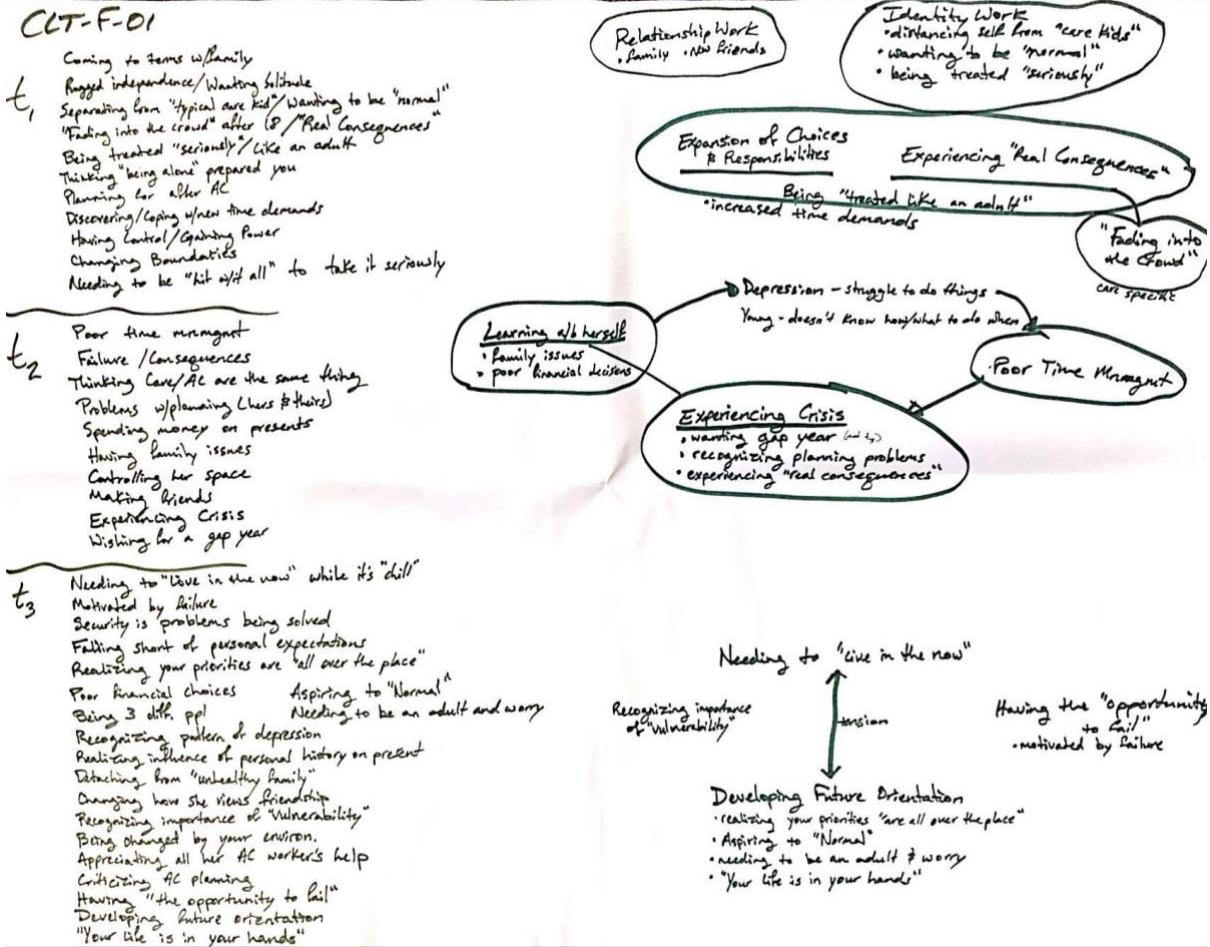 CLT-F-01
t1
Coming to terms w/family
Rugged independence/Wanting Solitude
Separating from "typical care kid"/Wanting to be "normal"
"Fading into the crowd" after 18/"Real Consequences"
Being treated "seriously"/Like an adult
Thinking "being alone" prepared you
Planning for after AC
Discovering/Coping w/new time demands
Having Control/Gaining Power
Changing Boundaries
Needing to be "hit w/it all" to take it seriously
t2
Poor time mnmgnt
Failure/Consequences
Thinking Care/AC are the same thing
Problems w/planning (hers & theirs)
Spending money on presents
Having family issues
Controlling her space
Making friends
Experiencing Crisis
Wishing for a gap year
t3
Needing to "Live in the now" while it's "chill"
Motivated by failure
Security is problems being solved
Falling short of personal expectations
Realizing your priorities are "all over the place"
Poor financial choices
Aspiring to "Normal"
Being 3 diff. ppl
Needing to be an adult and worry
Recognizing pattern of depression
Realizing influence of personal history on present
Detaching from "unhealthy family"
Changing how she views friendship
Recognizing importance of "Vulnerability"
Being changed by your environ.
Appreciating all her AC worker's help
Criticizing AC planning
Having "the opportunity to fail"
Developing future orientation
"Your life is in your hands"
Relationship Work
• family • New friends
Identity Work
• distancing self from "care kids"
• wanting to be "normal"
• being treated "seriously"
Expansion of Choices
& Responsibilities
Experiencing "Real Consequences"
Being "treated like an adult"
• increased time demands
"Fading into
the Crowd"
care specific
Learning a/b herself
• family issues
• poor financial decisions
Depression - struggle to do things
Young - doesn't know how/what to do when
Poor Time Mnmgnt
Experiencing Crisis
• wanting gap year
• recognizing planning problems
• experiencing "real consequences"
Needing to "live in the now"
tension
Recognizing importance
of "Vulnerability"
Having the "opportunity
to fail"
• motivated by failure
Developing Future Orientation
• realizing your priorities "are all over the place"
• Aspiring to "Normal"
• needing to be an adult & worry
• "Your life is in your hands"